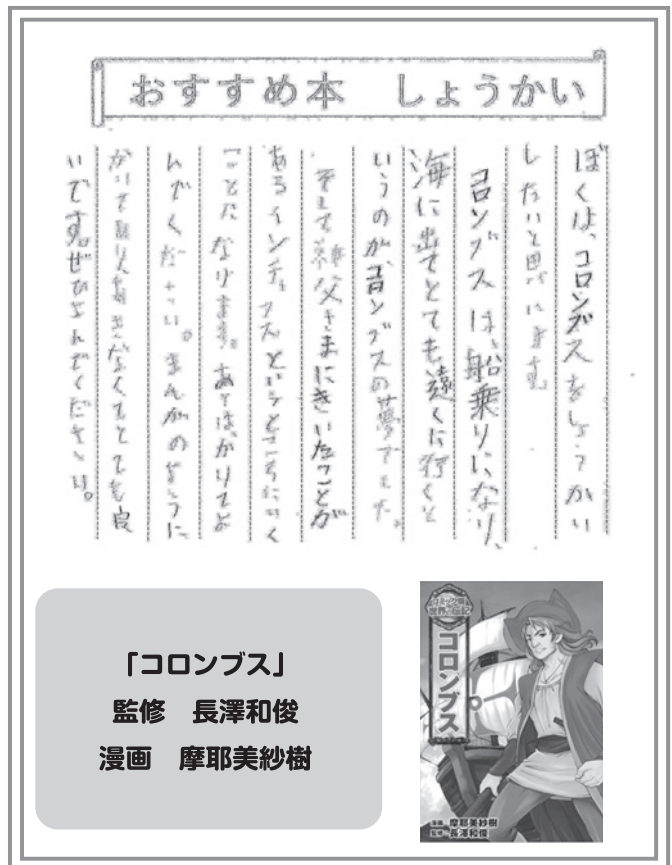 おすすめ本 しょうかい
ぼくは、コロンブスをしょうかい
したいと思います。
コロンブスは、船乗りになり、
海に出てとても遠くに行くと
いうのが、コロンブスの夢でした。
そして神父さまにきいたことが
あるインディアスというところにいく
ことになります。あとは、かりてよ
んでください。まんがのように
かいてあり
なくてとても良
いです。ぜひよんでください。
「コロンブス」
監修 長澤和俊
漫画 摩耶美紗樹
世界の伝記
コロンブス
漫画 摩耶美紗樹
監修 長澤和俊